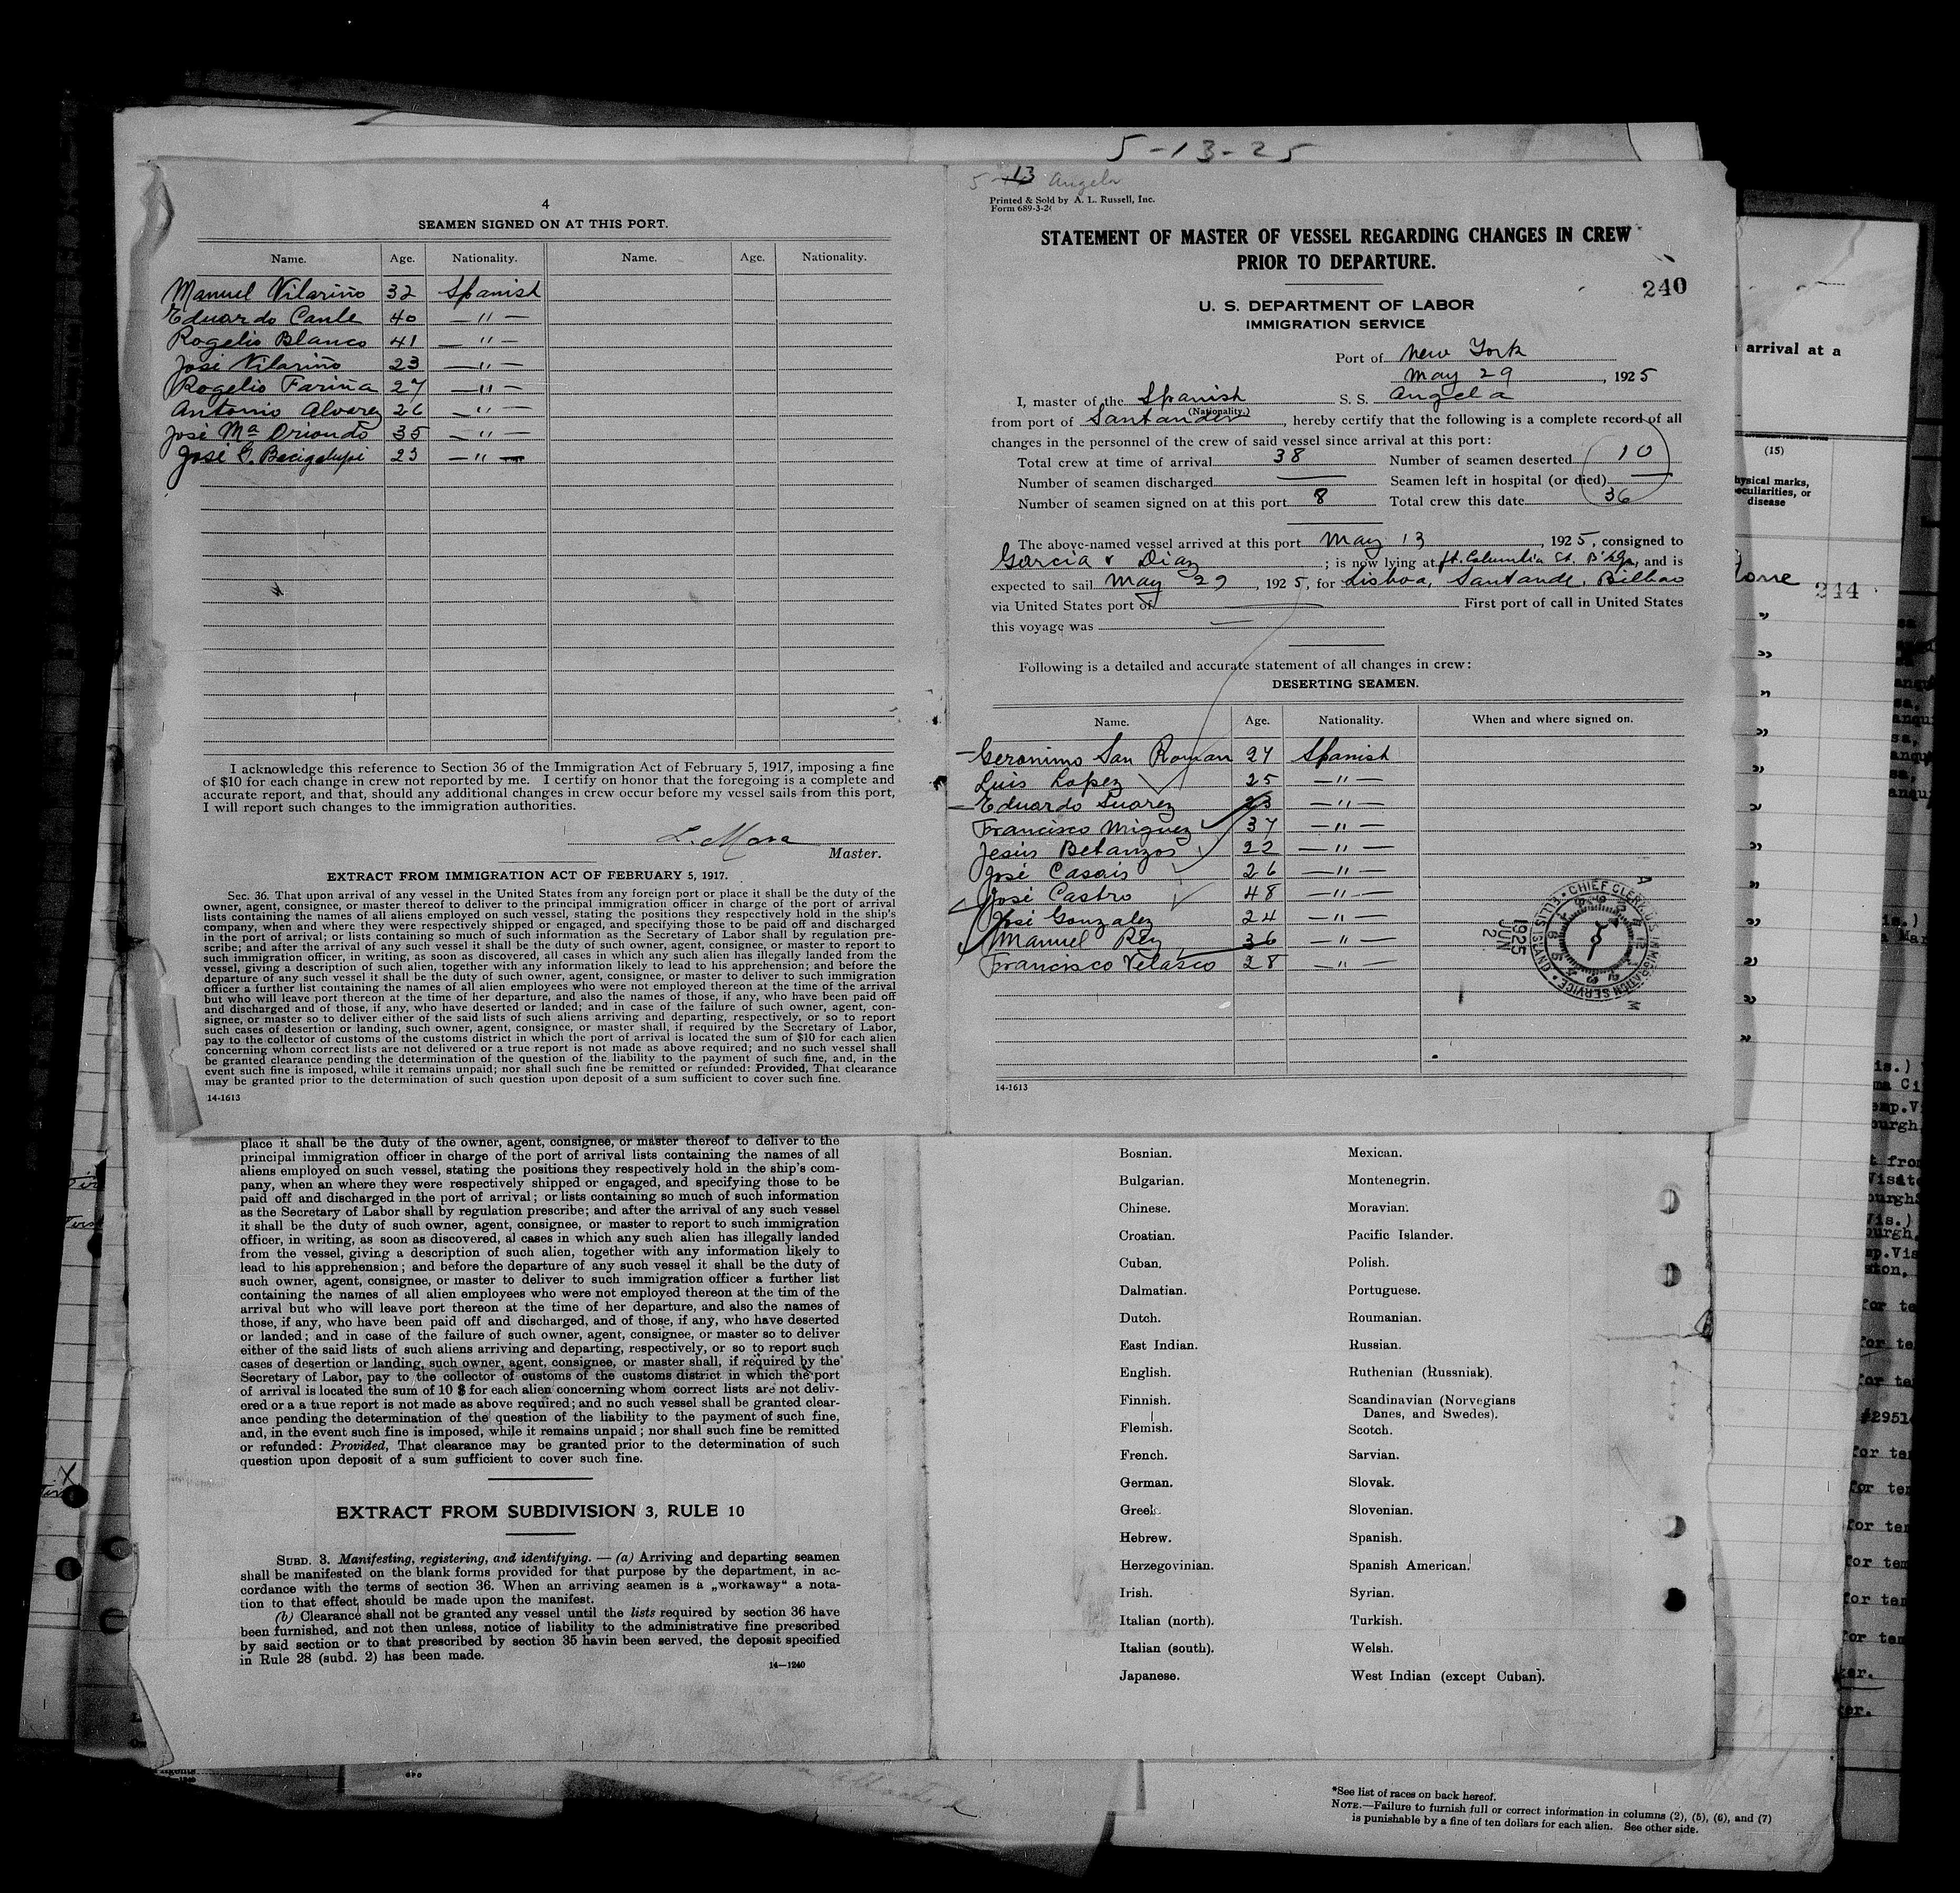 5-13-25
4
SEAMEN SIGNED ON AT THIS PORT.
Name. Age. Nationality. Name. Age. Nationality.
Manuel Vilariño 32 Spanish
Eduardo Canle 40 — " —
Rogelio Blanco 41 — " —
José Vilariño 23 — " —
Rogelio Fariña 27 — " —
Antonio Alvarez 26 — " —
José Mª Oriondo 35 — " —
José G. Bacigalupi 23 — " —
I acknowledge this reference to Section 36 of the Immigration Act of February 5, 1917, imposing a fine
of $10 for each change in crew not reported by me. I certify on honor that the foregoing is a complete and
accurate report, and that, should any additional changes in crew occur before my vessel sails from this port,
I will report such changes to the immigration authorities.
Master.
EXTRACT FROM IMMIGRATION ACT OF FEBRUARY 5, 1917.
Sec. 36. That upon arrival of any vessel in the United States from any foreign port or place it shall be the duty of the
owner, agent, consignee, or master thereof to deliver to the principal immigration officer in charge of the port of arrival
lists containing the names of all aliens employed on such vessel, stating the positions they respectively hold in the ship's
company, when and where they were respectively shipped or engaged, and specifying those to be paid off and discharged
in the port of arrival; or lists containing so much of such information as the Secretary of Labor shall by regulation pre-
scribe; and after the arrival of any such vessel it shall be the duty of such owner, agent, consignee, or master to report to
such immigration officer, in writing, as soon as discovered, all cases in which any such alien has illegally landed from the
vessel, giving a description of such alien, together with any information likely to lead to his apprehension; and before the
departure of any such vessel it shall be the duty of such owner, agent, consignee, or master to deliver to such immigration
officer a further list containing the names of all alien employees who were not employed thereon at the time of the arrival
but who will leave port thereon at the time of her departure, and also the names of those, if any, who have been paid off
and discharged and of those, if any, who have deserted or landed; and in case of the failure of such owner, agent, con-
signee, or master so to deliver either of the said lists of such aliens arriving and departing, respectively, or so to report
such cases of desertion or landing, such owner, agent, consignee, or master shall, if required by the Secretary of Labor,
pay to the collector of customs of the customs district in which the port of arrival is located the sum of $10 for each alien
concerning whom correct lists are not delivered or a true report is not made as above required; and no such vessel shall
be granted clearance pending the determination of the question of the liability to the payment of such fine, and, in the
event such fine is imposed, while it remains unpaid; nor shall such fine be remitted or refunded: Provided, That clearance
may be granted prior to the determination of such question upon deposit of a sum sufficient to cover such fine.
14-1613
13 Angela
Printed & Sold by A. L. Russell, Inc.
Form 689-3-2
STATEMENT OF MASTER OF VESSEL REGARDING CHANGES IN CREW
PRIOR TO DEPARTURE.
240
U. S. DEPARTMENT OF LABOR
IMMIGRATION SERVICE
Port of New York
May 29, 1925
I, master of the Spanish S. S. Angela
(Nationality.)
from port of Santander, hereby certify that the following is a complete record of all
changes in the personnel of the crew of said vessel since arrival at this port:
Total crew at time of arrival 38 Number of seamen deserted 10
Number of seamen discharged — Seamen left in hospital (or died) —
Number of seamen signed on at this port 8 Total crew this date 36
The above-named vessel arrived at this port May 13, 1925, consigned to
Garcia & Diaz; is now lying at ft. Columbia St. B'klyn, and is
expected to sail May 29, 1925, for Lisboa, Santande, Bilbao
via United States port of — First port of call in United States
this voyage was —
Following is a detailed and accurate statement of all changes in crew:
DESERTING SEAMEN.
Name. Age. Nationality. When and where signed on.
Geronimo San Roman 27 Spanish
Luis Lopez 25 — " —
Eduardo Suarez 23 — " —
Francisco Miguez 37 — " —
Jesús Betanzos 22 — " —
José Casais 26 — " —
José Castro 48 — " —
José Gonzalez 24 — " —
Manuel Rey 36 — " —
Francisco Velasco 28 — " —
CHIEF CLERK U.S. IMMIGRATION SERVICE ELLIS ISLAND
A M
1925
JUN
2
14-1613
arrival at a
(15)
hysical marks,
peculiarities, or
disease
244
place it shall be the duty of the owner, agent, consignee, or master thereof to deliver to the
principal immigration officer in charge of the port of arrival lists containing the names of all
aliens employed on such vessel, stating the positions they respectively hold in the ship's com-
pany, when an where they were respectively shipped or engaged, and specifying those to be
paid off and discharged in the port of arrival; or lists containing so much of such information
as the Secretary of Labor shall by regulation prescribe; and after the arrival of any such vessel
it shall be the duty of such owner, agent, consignee, or master to report to such immigration
officer, in writing, as soon as discovered, al cases in which any such alien has illegally landed
from the vessel, giving a description of such alien, together with any information likely to
lead to his apprehension; and before the departure of any such vessel it shall be the duty of
such owner, agent, consignee, or master to deliver to such immigration officer a further list
containing the names of all alien employees who were not employed thereon at the tim of the
arrival but who will leave port thereon at the time of her departure, and also the names of
those, if any, who have been paid off and discharged, and of those, if any, who have deserted
or landed; and in case of the failure of such owner, agent, consignee, or master so to deliver
either of the said lists of such aliens arriving and departing, respectively, or so to report such
cases of desertion or landing, such owner, agent, consignee, or master shall, if required by the
Secretary of Labor, pay to the collector of customs of the customs district in which the port
of arrival is located the sum of 10 $ for each alien concerning whom correct lists are not deliv-
ered or a a true report is not made as above required; and no such vessel shall be granted clear-
ance pending the determination of the question of the liability to the payment of such fine,
and, in the event such fine is imposed, while it remains unpaid; nor shall such fine be remitted
or refunded: Provided, That clearance may be granted prior to the determination of such
question upon deposit of a sum sufficient to cover such fine.
EXTRACT FROM SUBDIVISION 3, RULE 10
SUBD. 3. Manifesting, registering, and identifying. — (a) Arriving and departing seamen
shall be manifested on the blank forms provided for that purpose by the department, in ac-
cordance with the terms of section 36. When an arriving seamen is a „workaway“ a nota-
tion to that effect should be made upon the manifest.
(b) Clearance shall not be granted any vessel until the lists required by section 36 have
been furnished, and not then unless, notice of liability to the administrative fine prescribed
by said section or to that prescribed by section 35 havin been served, the deposit specified
in Rule 28 (subd. 2) has been made.
14—1240
Bosnian. Mexican.
Bulgarian. Montenegrin.
Chinese. Moravian.
Croatian. Pacific Islander.
Cuban. Polish.
Dalmatian. Portuguese.
Dutch. Roumanian.
East Indian. Russian.
English. Ruthenian (Russniak).
Finnish. Scandinavian (Norvegians
Danes, and Swedes).
Flemish. Scotch.
French. Sarvian.
German. Slovak.
Greek. Slovenian.
Hebrew. Spanish.
Herzegovinian. Spanish American.
Irish. Syrian.
Italian (north). Turkish.
Italian (south). Welsh.
Japanese. West Indian (except Cuban).
*See list of races on back hereof.
NOTE.—Failure to furnish full or correct information in columns (2), (5), (6), and (7)
is punishable by a fine of ten dollars for each alien. See other side.